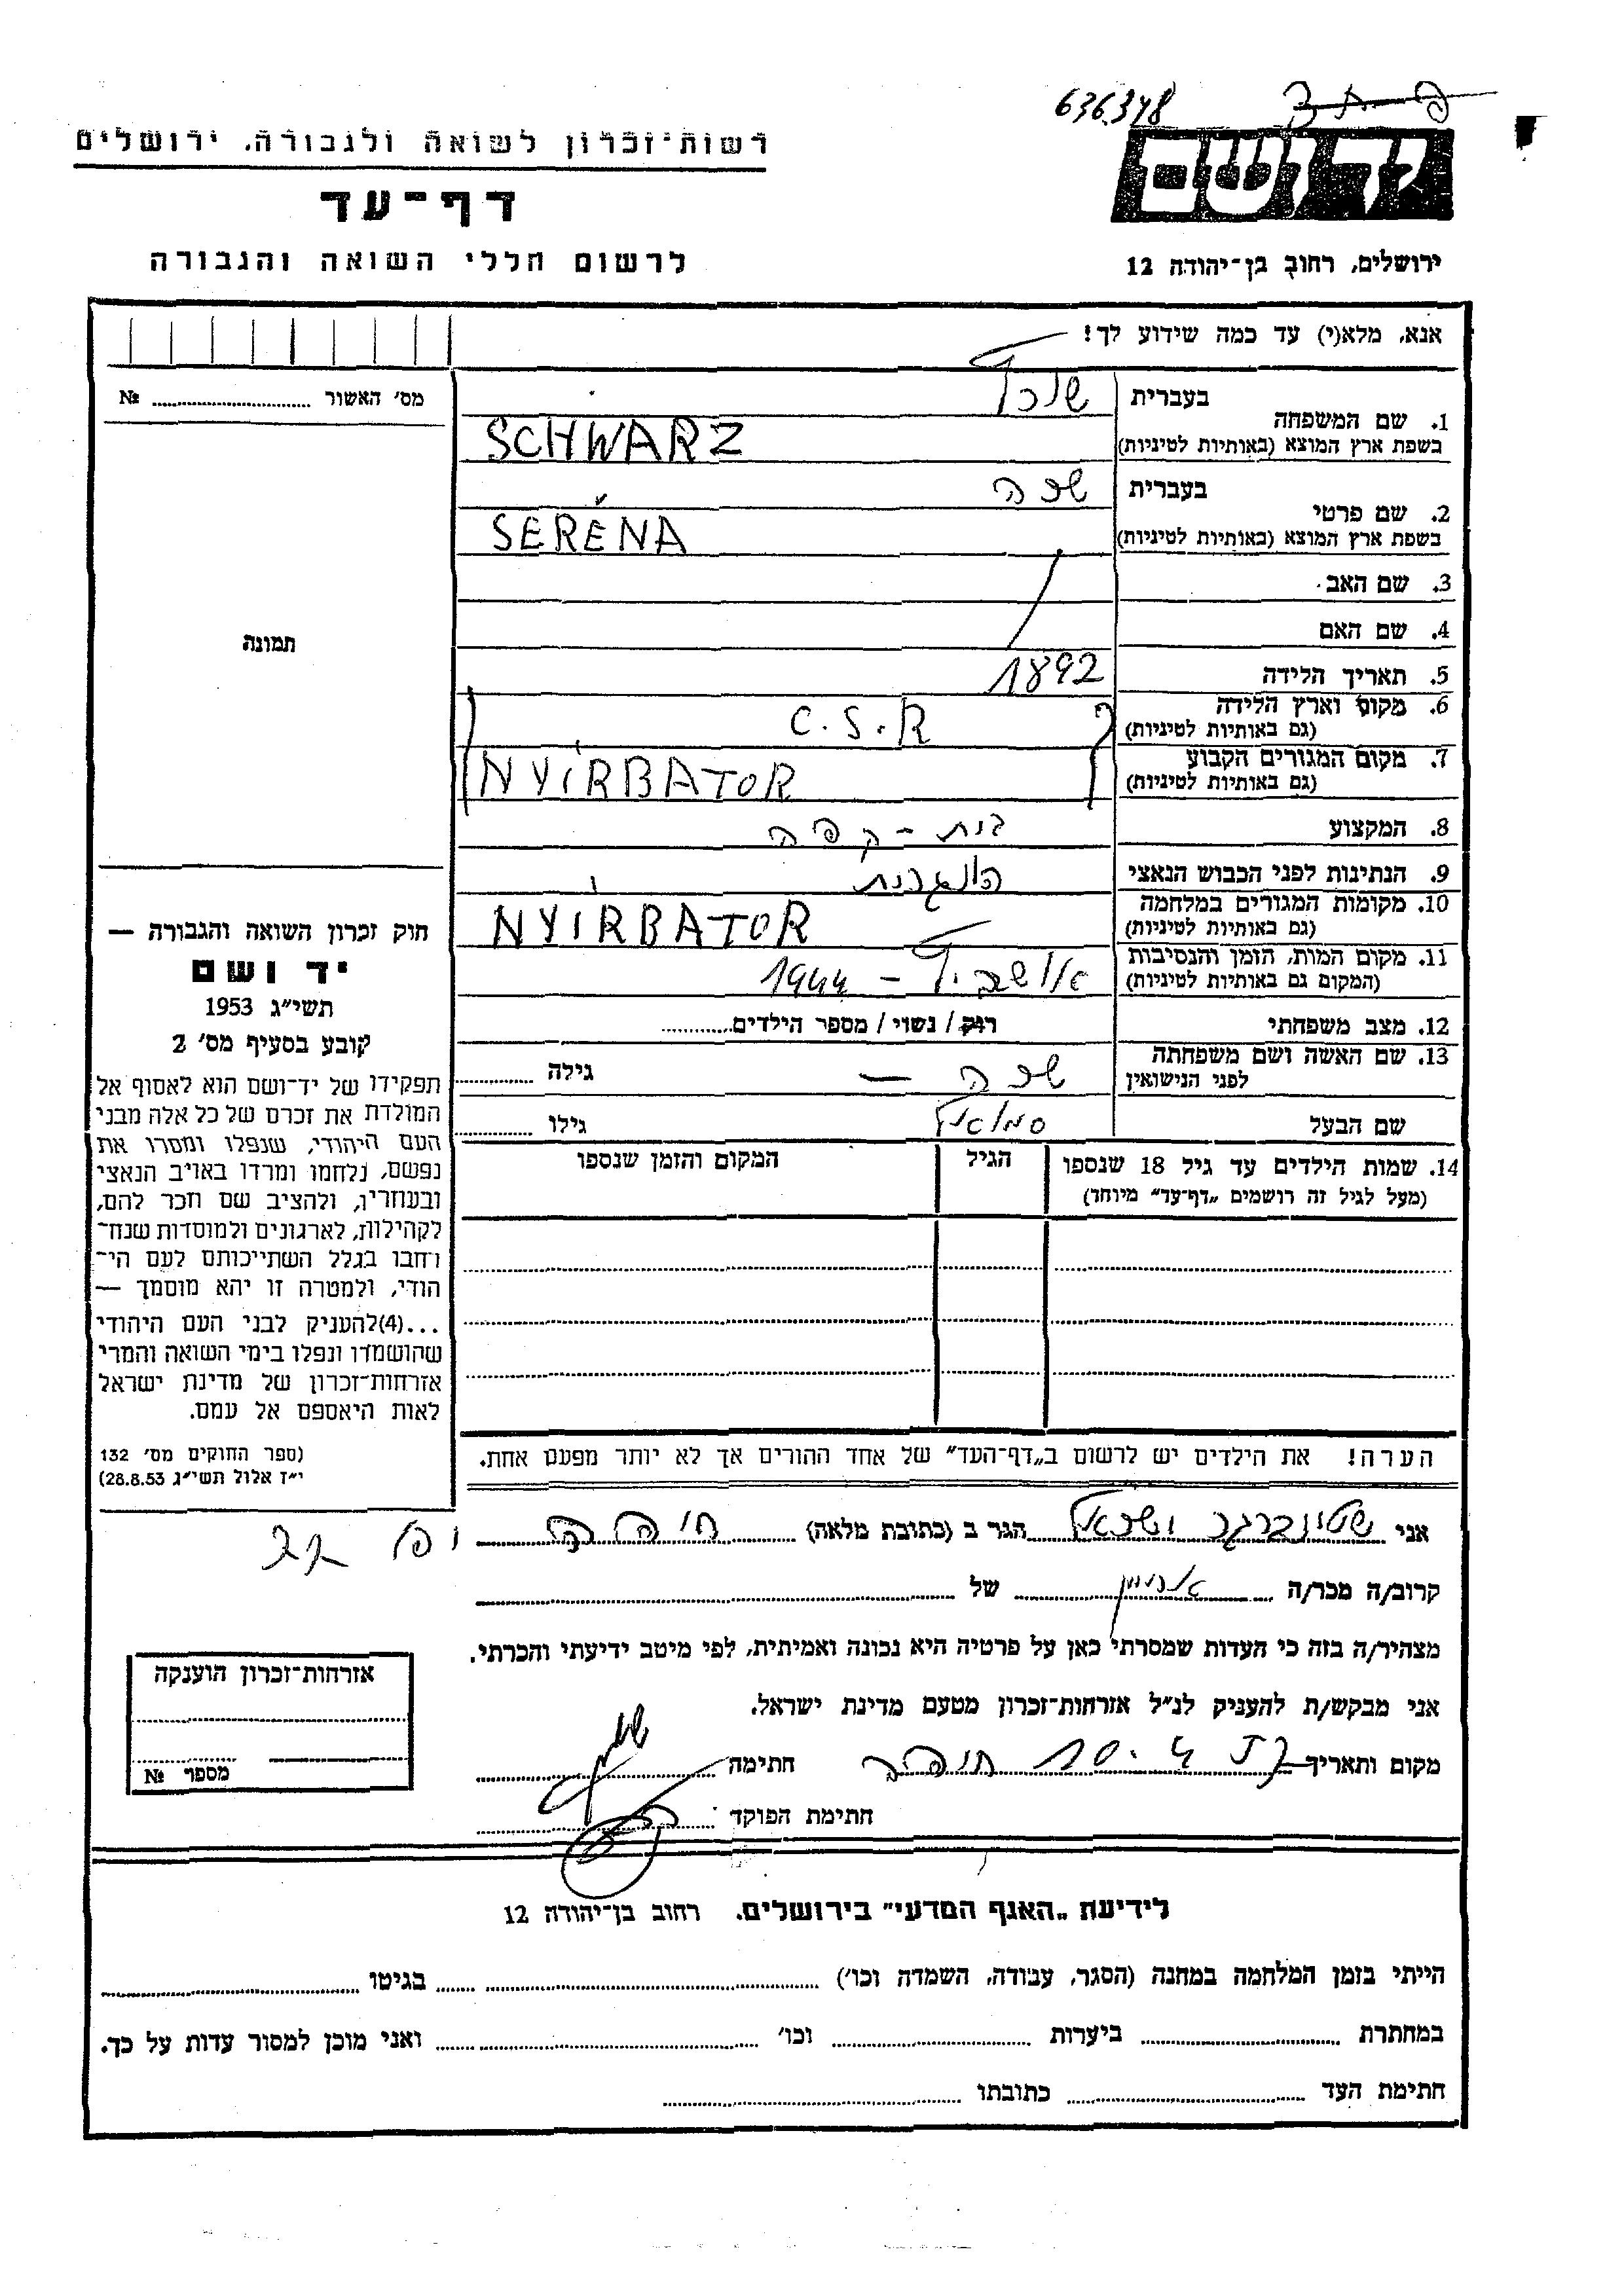 636348
רשות־זכרון לשואה ולגבורה, ירושלים
ידושם
דף־עד
לרשום חללי השואה והגבורה
ירושלים, רחוב בן־יהודה 12
אנא, מלא(י) עד כמה שידוע לך!
מס' האשור № ..........
1. שם המשפחה
בעברית שורץ
בשפת ארץ המוצא (באותיות לטיניות) SCHWARZ
2. שם פרטי
בעברית שרה
בשפת ארץ המוצא (באותיות לטיניות) SERÉNA
3. שם האב
4. שם האם
5. תאריך הלידה 1892
6. מקום וארץ הלידה C.S.R
(גם באותיות לטיניות)
7. מקום המגורים הקבוע NYÍRBATOR
(גם באותיות לטיניות)
8. המקצוע בית-קפה
9. הנתינות לפני הכבוש הנאצי הונגרית
10. מקומות המגורים במלחמה NYÍRBATOR
(גם באותיות לטיניות)
11. מקום המות, הזמן והנסיבות אושביץ - 1944
(המקום גם באותיות לטיניות)
12. מצב משפחתי רוק / נשוי / מספר הילדים..........
13. שם האשה ושם משפחתה שרה — גילה ..........
לפני הנישואין
שם הבעל גילו ..........
14. שמות הילדים עד גיל 18 שנספו הגיל המקום והזמן שנספו
(מעל לגיל זה רושמים „דף־עד" מיוחד)
תמונה
חוק זכרון השואה והגבורה —
יד ושם
תשי"ג 1953
קובע בסעיף מס' 2
תפקידו של יד־ושם הוא לאסוף אל
המולדת את זכרם של כל אלה מבני
העם היהודי, שנפלו ומסרו את
נפשם, נלחמו ומרדו באויב הנאצי
ובעוזריו, ולהציב שם וזכר להם,
לקהילות, לארגונים ולמוסדות שנח־
רחבו בגלל השתייכותם לעם הי־
הודי, ולמטרה זו יהא מוסמך —
...(4)להעניק לבני העם היהודי
שהושמדו ונפלו בימי השואה והמרי
אזרחות־זכרון של מדינת ישראל
לאות היאספם אל עמם.
(ספר החוקים מס' 132
י"ז אלול תשי"ג 28.8.53)
הערה! את הילדים יש לרשום ב„דף־העד" של אחד ההורים אך לא יותר מפעם אחת.
אני שטינברגר ישראל הגר ב (כתובת מלאה) חיפה
קרוב/ה מכר/ה של ..........
מצהיר/ה בזה כי העדות שמסרתי כאן על פרטיה היא נכונה ואמיתית, לפי מיטב ידיעתי והכרתי.
אני מבקש/ת להעניק לנ"ל אזרחות־זכרון מטעם מדינת ישראל.
מקום ותאריך 10.4 חיפה חתימה
חתימת הפוקד
אזרחות־זכרון הוענקה
מספר №
לידיעת „האגף המדעי" בירושלים, רחוב בן־יהודה 12
הייתי בזמן המלחמה במחנה (הסגר, עבודה, השמדה וכו') .......... בגיטו ..........
במחתרת .......... ביערות .......... וכו' .......... ואני מוכן למסור עדות על כך.
חתימת העד .......... כתובתו ..........